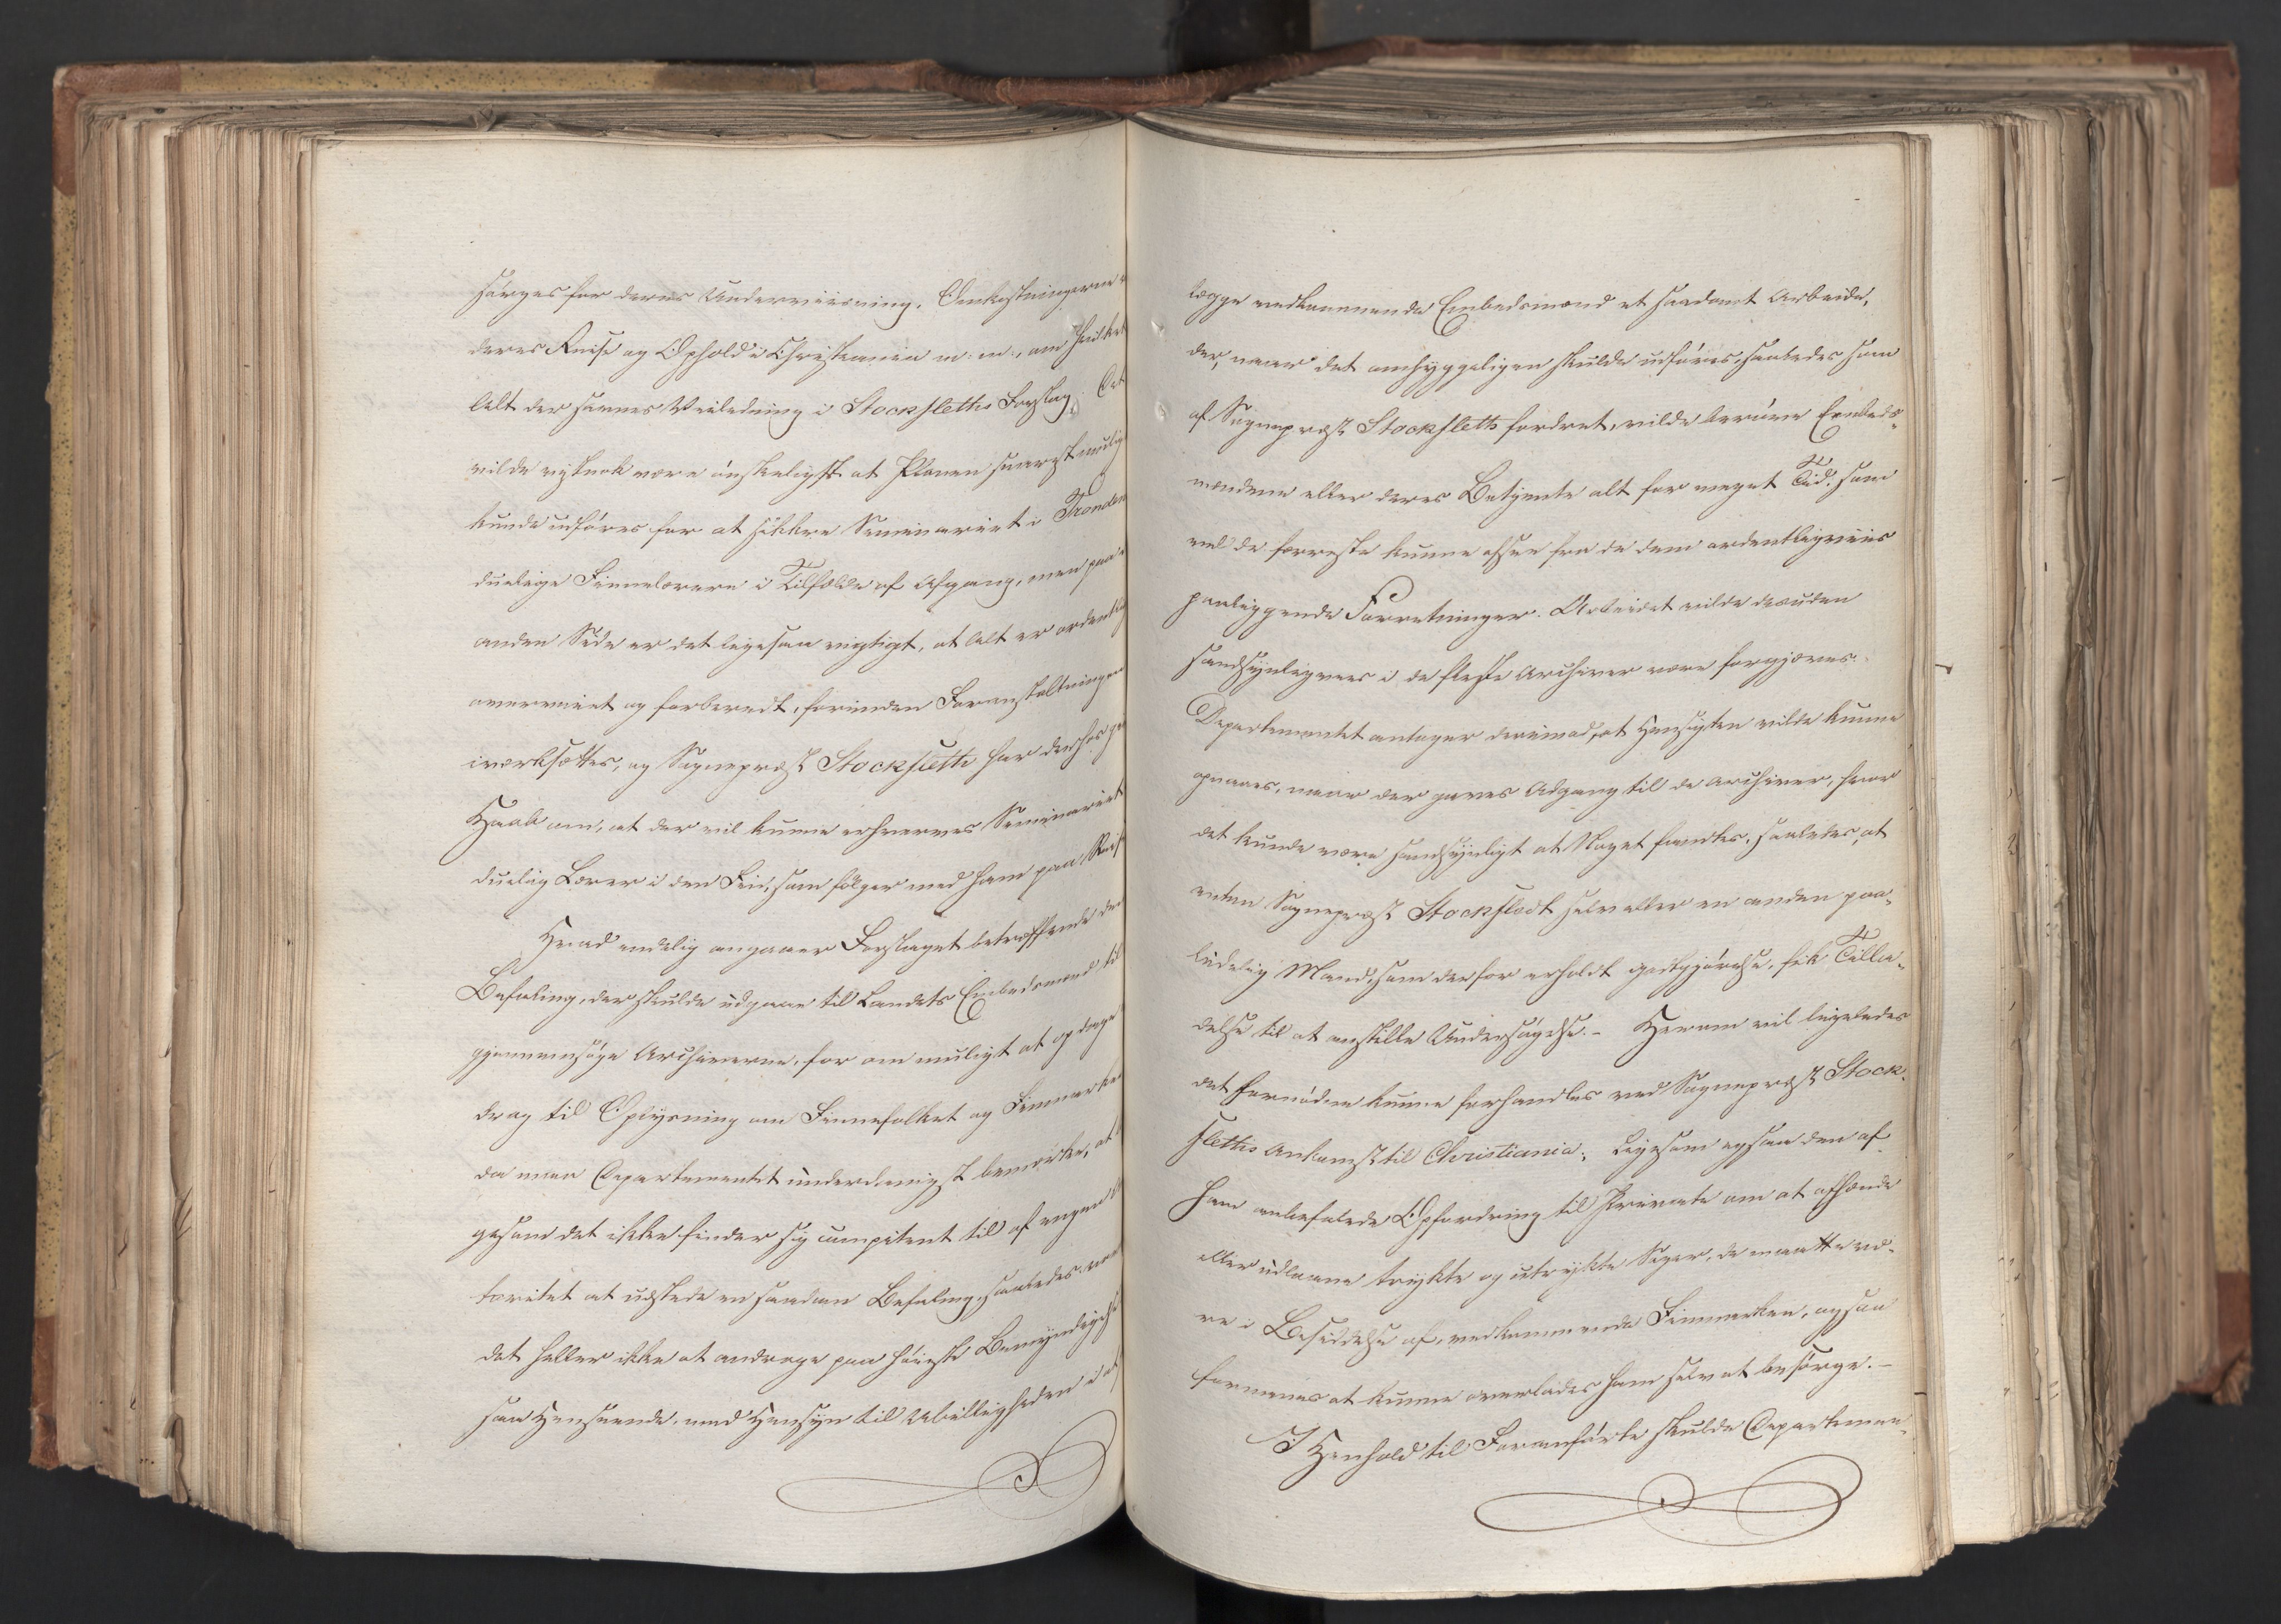 sørges for deres Underviisning. Omkostningerne
deres Reise og Ophold i Christiania m: m:, om hvilket
Alt der savnes Veiledning i Stockfleths Forslag. Det
vilde vistnok være ønskeligst at Planen snarest muligt
kunde udføres for at sikkre Seminariet i Tronden
duelige Finnelærere i Tilfælde af Afgang, men paa
anden Side er det ligesaa vigtigt, at Alt er ordentlig
overveiet og forberedt, forinden Foranstaltningen
iværksættes, og Sognepræst Stockfleth har derhos
Haab om, at der vil kunne erhverves Seminariet
duelig Lærer i den Fin, som følger med ham paa Reis
Hvad endelig angaaer Forslaget betræffende den
Befaling, der skulde udgaae til Landets Embedsmænd til
gjennemsøge Archiverne, for om muligt at opdage
drag til Oplysning om Finnefolket og Finmarken
da maa Departementet underdanigst bemærke, at
gesom det ikke finder sig competent til af egen
toritet at udstede en saadan Befaling, saaledes
det heller ikke at andrage paa høieste Bemyndigelse
saa Henseende, med Hensyn til Ubilligheden i at
lægge vedkommende Embedsmænd et saadant Arbeide,
der, naar det omhyggeligen skulde udføres, saaledes som
af Sognepræst Stockfleth fordret, vilde berøve Embeds-
mændene eller deres Betjente alt for meget Tid, som
vel de færreste kunne afsee fra de dem ordentligviis
paaliggende Forretninger. Arbeidet vilde desuden
sandsynligviis i de fleste Archiver være forgjæves.
Departementet antager derimod, at Hensigten vilde kunne
opnaaes, naar der gaves Adgang til de Archiver, hvor
det kunde være sandsynligt at Noget fandtes, saaledes, at
enten Sognepræst Stockfledt selv eller en anden paa-
lidelig Mand, som derfor erholdt godtgjørelse, fik Tilla-
delse til at anstille Undersøgelse. - Herom vil ligeledes
det fornødne kunne forhandles ved Sognepræst Stock-
fleths Ankomst til Christiania; ligesom ogsaa den af
ham anbefalede Opfordring til Private om at afhænde
eller udlaane trykte og utrykte Sager, de maatte væ-
re i Besiddelse af, vedkommende Finmarken, ogsaa
formenes at kunne overlades ham selv at besørge. -
I Henhold til Foranførte skulde Departemen-